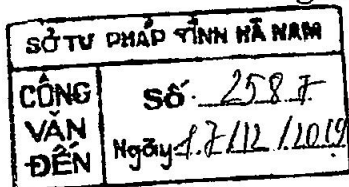 SỞ TƯ PHÁP TỈNH HÀ NAM
CÔNG VĂN ĐẾN
Số: 2587
Ngày 17/12/2019